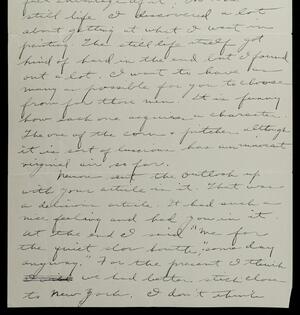 still life I discovered a lot
about getting at what I want in
painting. The still life itself got
kind of hard in the end but I found
out a lot. I want to have as
many as possible for you to choose
from for those men. It is funny
how each one acquires a character.
The one of the corn & pitcher although
it is sort of luscious has an
virginal air so far.
sent the Outlook up
with your article in it. That was
a delicious article. It had such a
nice feeling and had you in it.
At the end I said "Me for
the quiet slow South, some day
anyway." For the present I think
we had better stick close
to New York. I don't think